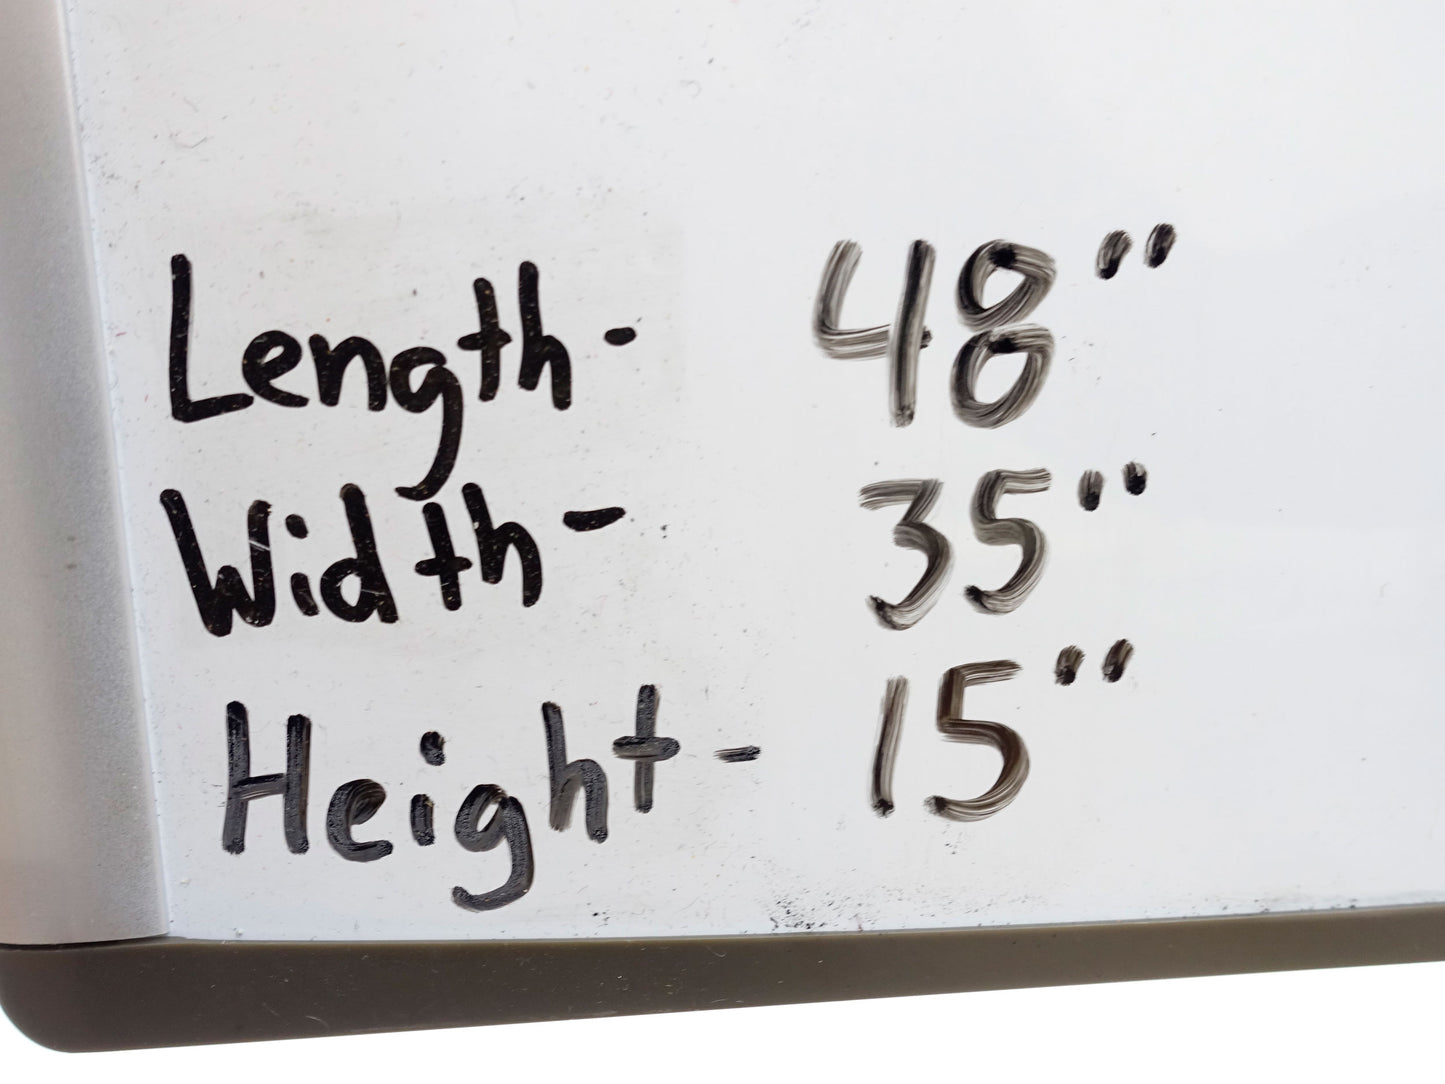 Length- 48"
Width- 35"
Height- 15"